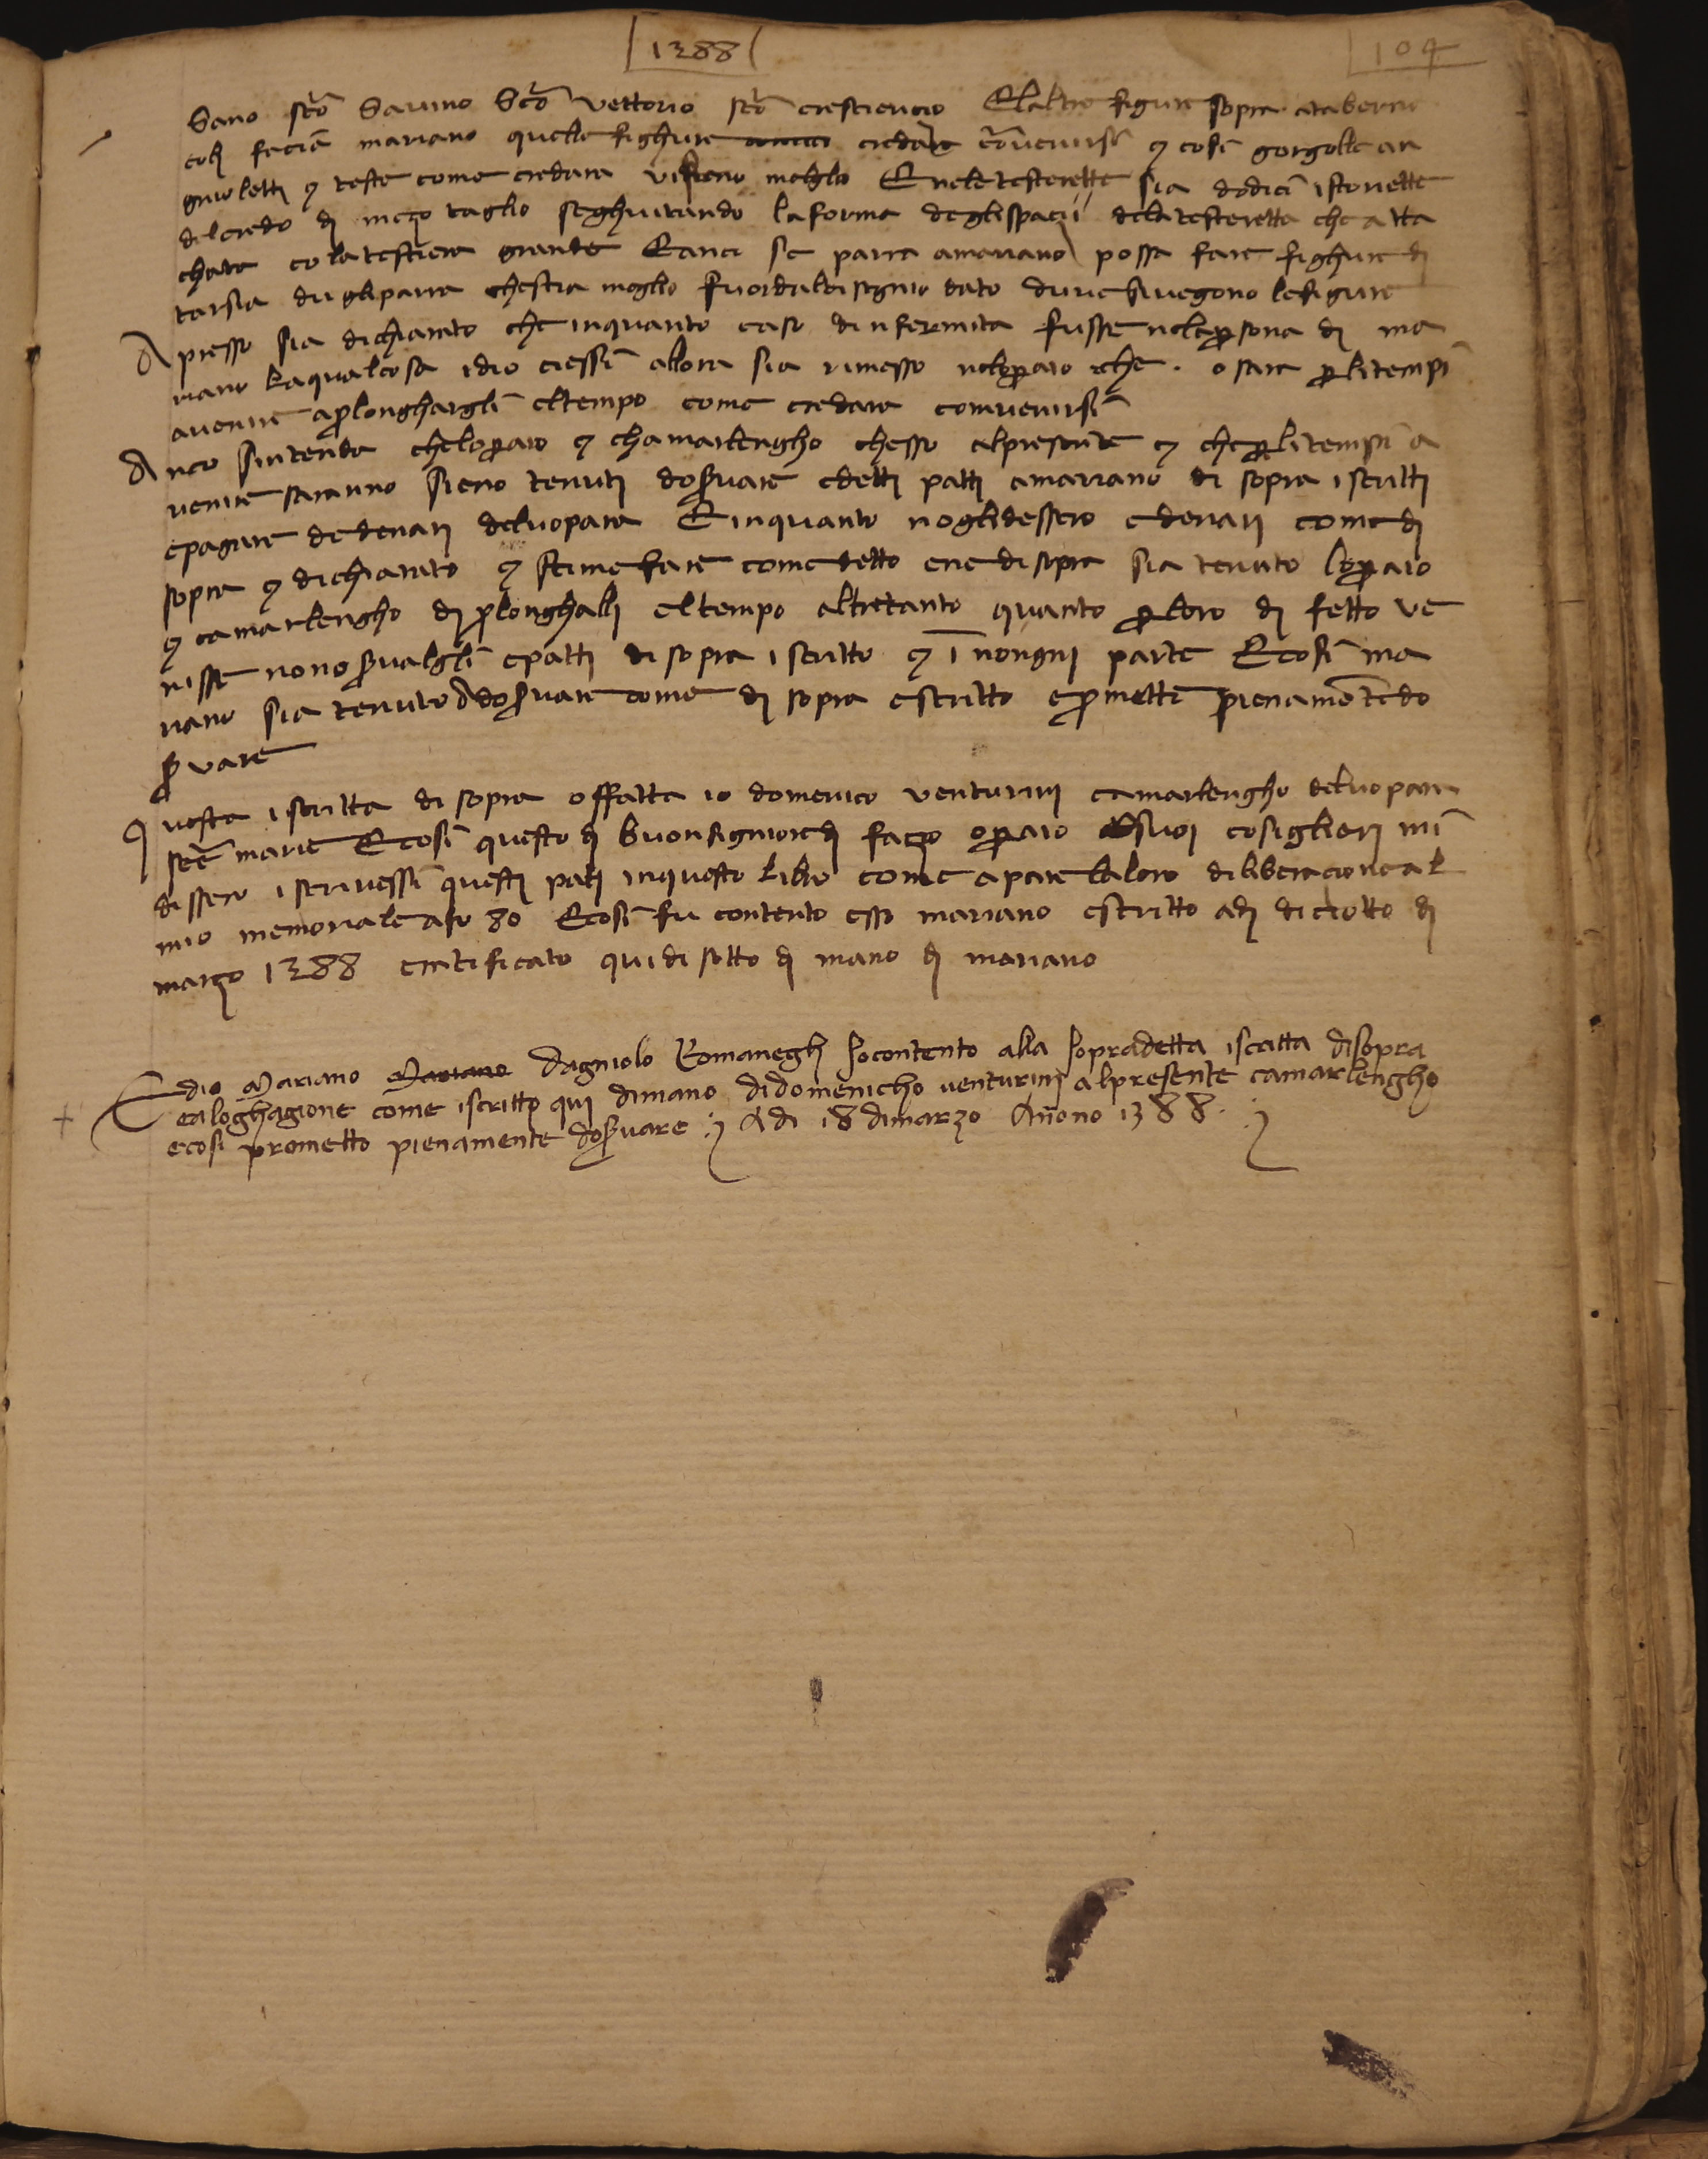 1388
104
Sano sc̄o Savino Sc̄o vettorio sc̄o crescencio E laltre figure sopra a taberna
coli faciā mariano quelle fighure credara cōvenirsi e cosi gorgolle an
gnioletti e teste come credara vi sieno meglio E nele testerette sia dodici istoriette
del credo di mezo taglio seghuitando la forma degli spacii dela testeretta che atta
chata cola testiera grande E anci se parra a mariano possa fare fighure di
tarsia du gli parra che stia meglio fuor da loi segnio dato du ve si vegono le figure
A presso sia dichiarato che inquanto caso dinfermita fusse nela p̱sona di ma
riano la qualcosa idio ciessi allora sia rimesso nelop̱aio che o sara p̱ li tempi
avenire a p̱longhargli el tempo come credara convenirsi
A nco sintenda che lop̱aio e chamarlengho chesso al presente e che p̱ li tempi a
venire saranno sieno tenuti dos̱vare e detti patti a mariano di sopra iscritti
e pagare de denari deluopara E inquanto no gli dessero e denari come di
sopra e dichiarato e stimefare come detto ene di sopra sia tenuto lop̱aio
e camarlengho di p̱longhalli el tempo altretanto quanto p̱ loro di fetto ve
nisse non os̱valgli e patti di sopra iscritto e ī nongni parte E cosi ma
riano sia tenuto ados̱vare come di sopra e scritto e p̱mette pienamēte do
s̱vare
Q uesta iscritta di sopra o ffatta io domenico venturini camarlengho deluopara
sc̄e marie E cosi questo di buonsigniore di facio op̱aio e suoi cosiglieri mi
dissero iscrivessi questi pati in questo libro come apare la loro diliberacione al
mio memoriale a fo 80 E cosi fu contento esso mariano e scritto adi diciotto di
marzo 1388 certificato qui di sotto di mano di mariano
E dio Mariano Mariano dagniolo Romanegli so contento alla sopradetta iscritta disopra
e a loghagione come iscritto qui dimano di domenicho venturini al presente camarlengho
e cosi prometto pienamente dos̱vare A di 18 dimarzo An̄o no 1388